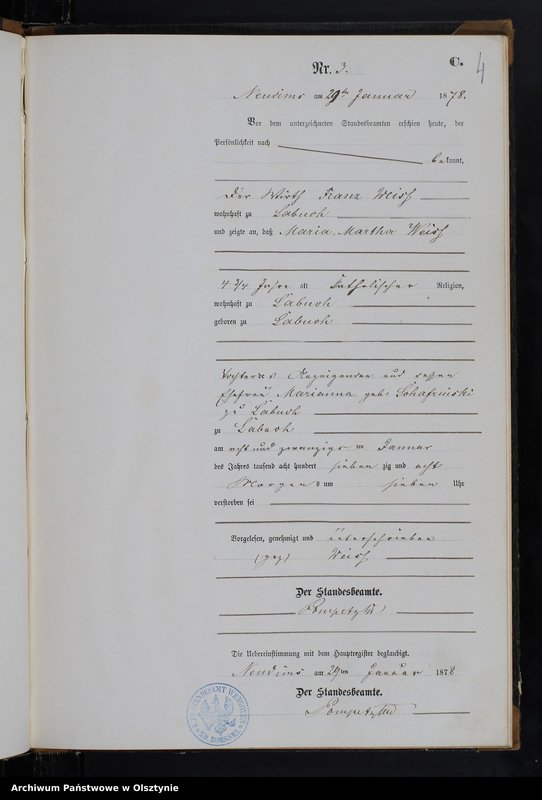 Nr. 3.
C.
4
am 29ten Januar 1878.
Vor dem unterzeichneten Standesbeamten erschien heute, der
Persönlichkeit nach
bekannt,
der Wirth Franz Weiss
wohnhaft zu Labuch
und zeigte an, daß Maria Martha Weiss
4 3/4 Jahre alt Katholischer Religion,
wohnhaft zu Labuch
geboren zu Labuch
Tochter des Anzeigenden und dessen
Ehefrau Marianna geb. Schafrinski
zu Labuch
zu Labuch
am acht und zwanzigsten Januar
des Jahres tausend acht hundert sieben zig und acht
Morgens um sieben Uhr
verstorben sei
Vorgelesen, genehmigt und unterschrieben
(gez) Weiss
Der Standesbeamte.
Die Uebereinstimmung mit dem Hauptregister beglaubigt.
am 29ten Januar 1878
Der Standesbeamte.
Archiwum Państwowe w Olsztynie